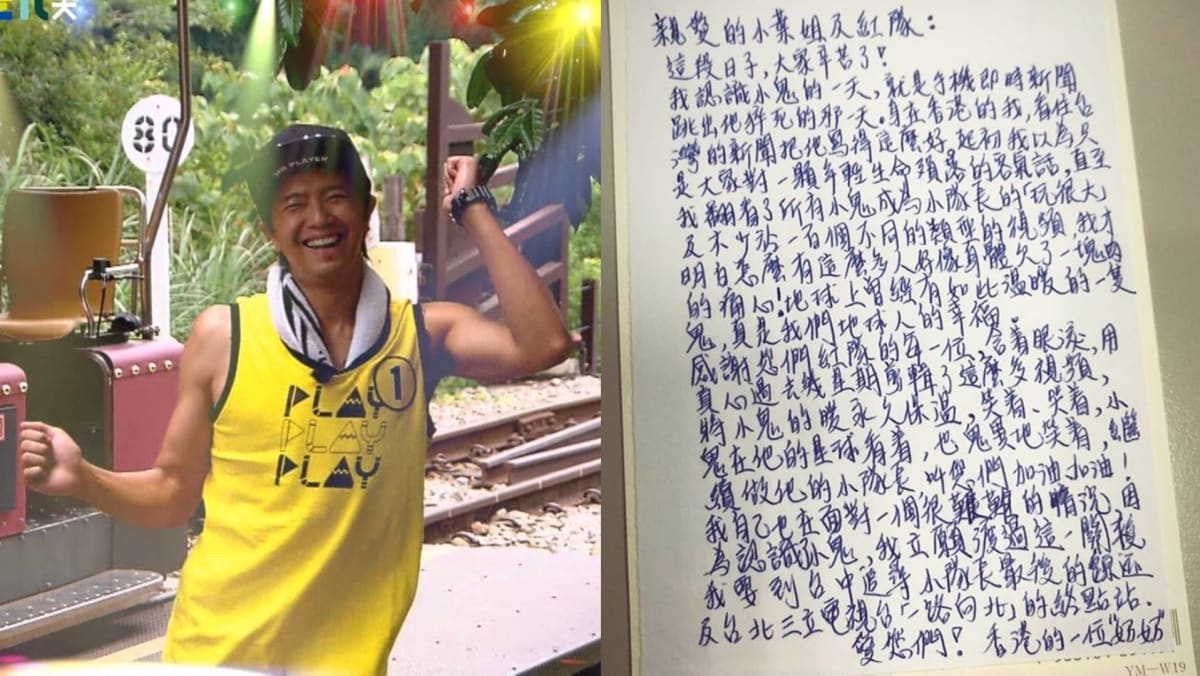 80
MR PLAYER
1
PLAY
PLAY
PLAY
親愛的小葉姐及紅隊：
這段日子，大家辛苦了！
我認識小鬼的一天，就是手機即時新聞
跳出他猝死的那一天。身在香港的我，看住台
灣的新聞把他寫得這麼好，起初我以為只
是大家對一顆年輕生命殞落的客氣話，直至
我翻看了所有小鬼成為小隊長的「玩很大」
及不少於一百個不同的類型的視頻，我才
明白怎麼有這麼多人好像身體欠了一塊肉
的痛心！地球上曾經有如此溫暖的一隻
鬼，真是我們地球人的幸福。
感謝您們紅隊的每一位，含着眼淚，用
真心過去幾星期剪輯了這麼多視頻，
將小鬼的暖永久保溫，笑着、笑着，小
鬼在他的星球看着，也鬼異地笑着，繼
續做他的小隊長，叫您們加油加油！
我自己也在面對一個很艱難的情況，因
為認識小鬼，我立願渡過這一關後
我要到台中追尋小隊長最後的
及台北三立電視台「一路向北」的終點站。
愛您們！ 香港的一位"奶奶"
YM-W19